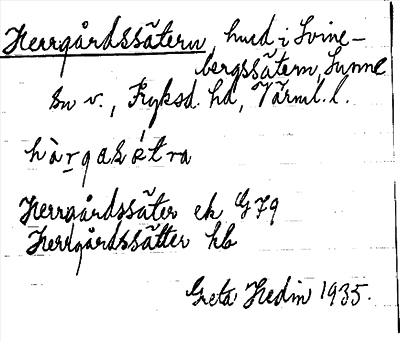 Herrgårdssätern, hmd i Svine-
bergssätern, Sunne
sn v., Fryksd. hd, Värml. l.
hàrgasétra
Herrgårdssäter ek G79
Herrgårdssätter hb
Greta Hedin 1935.